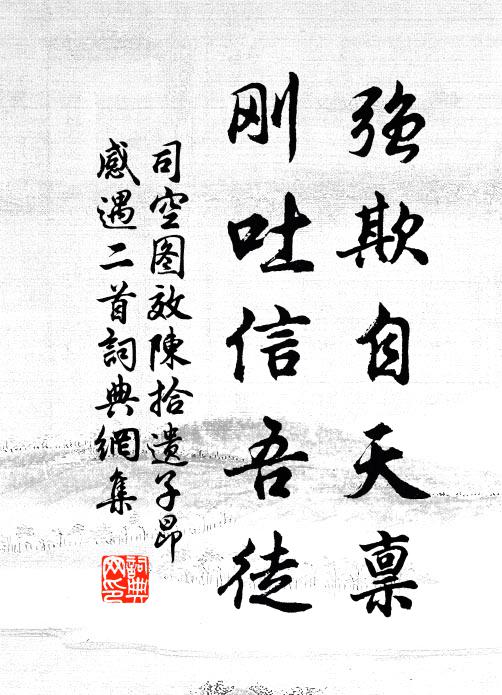 強欺自天禀
刚吐信吾徒
司空图效陳拾遺子昂
感遇二首詞典網集
詞典网印